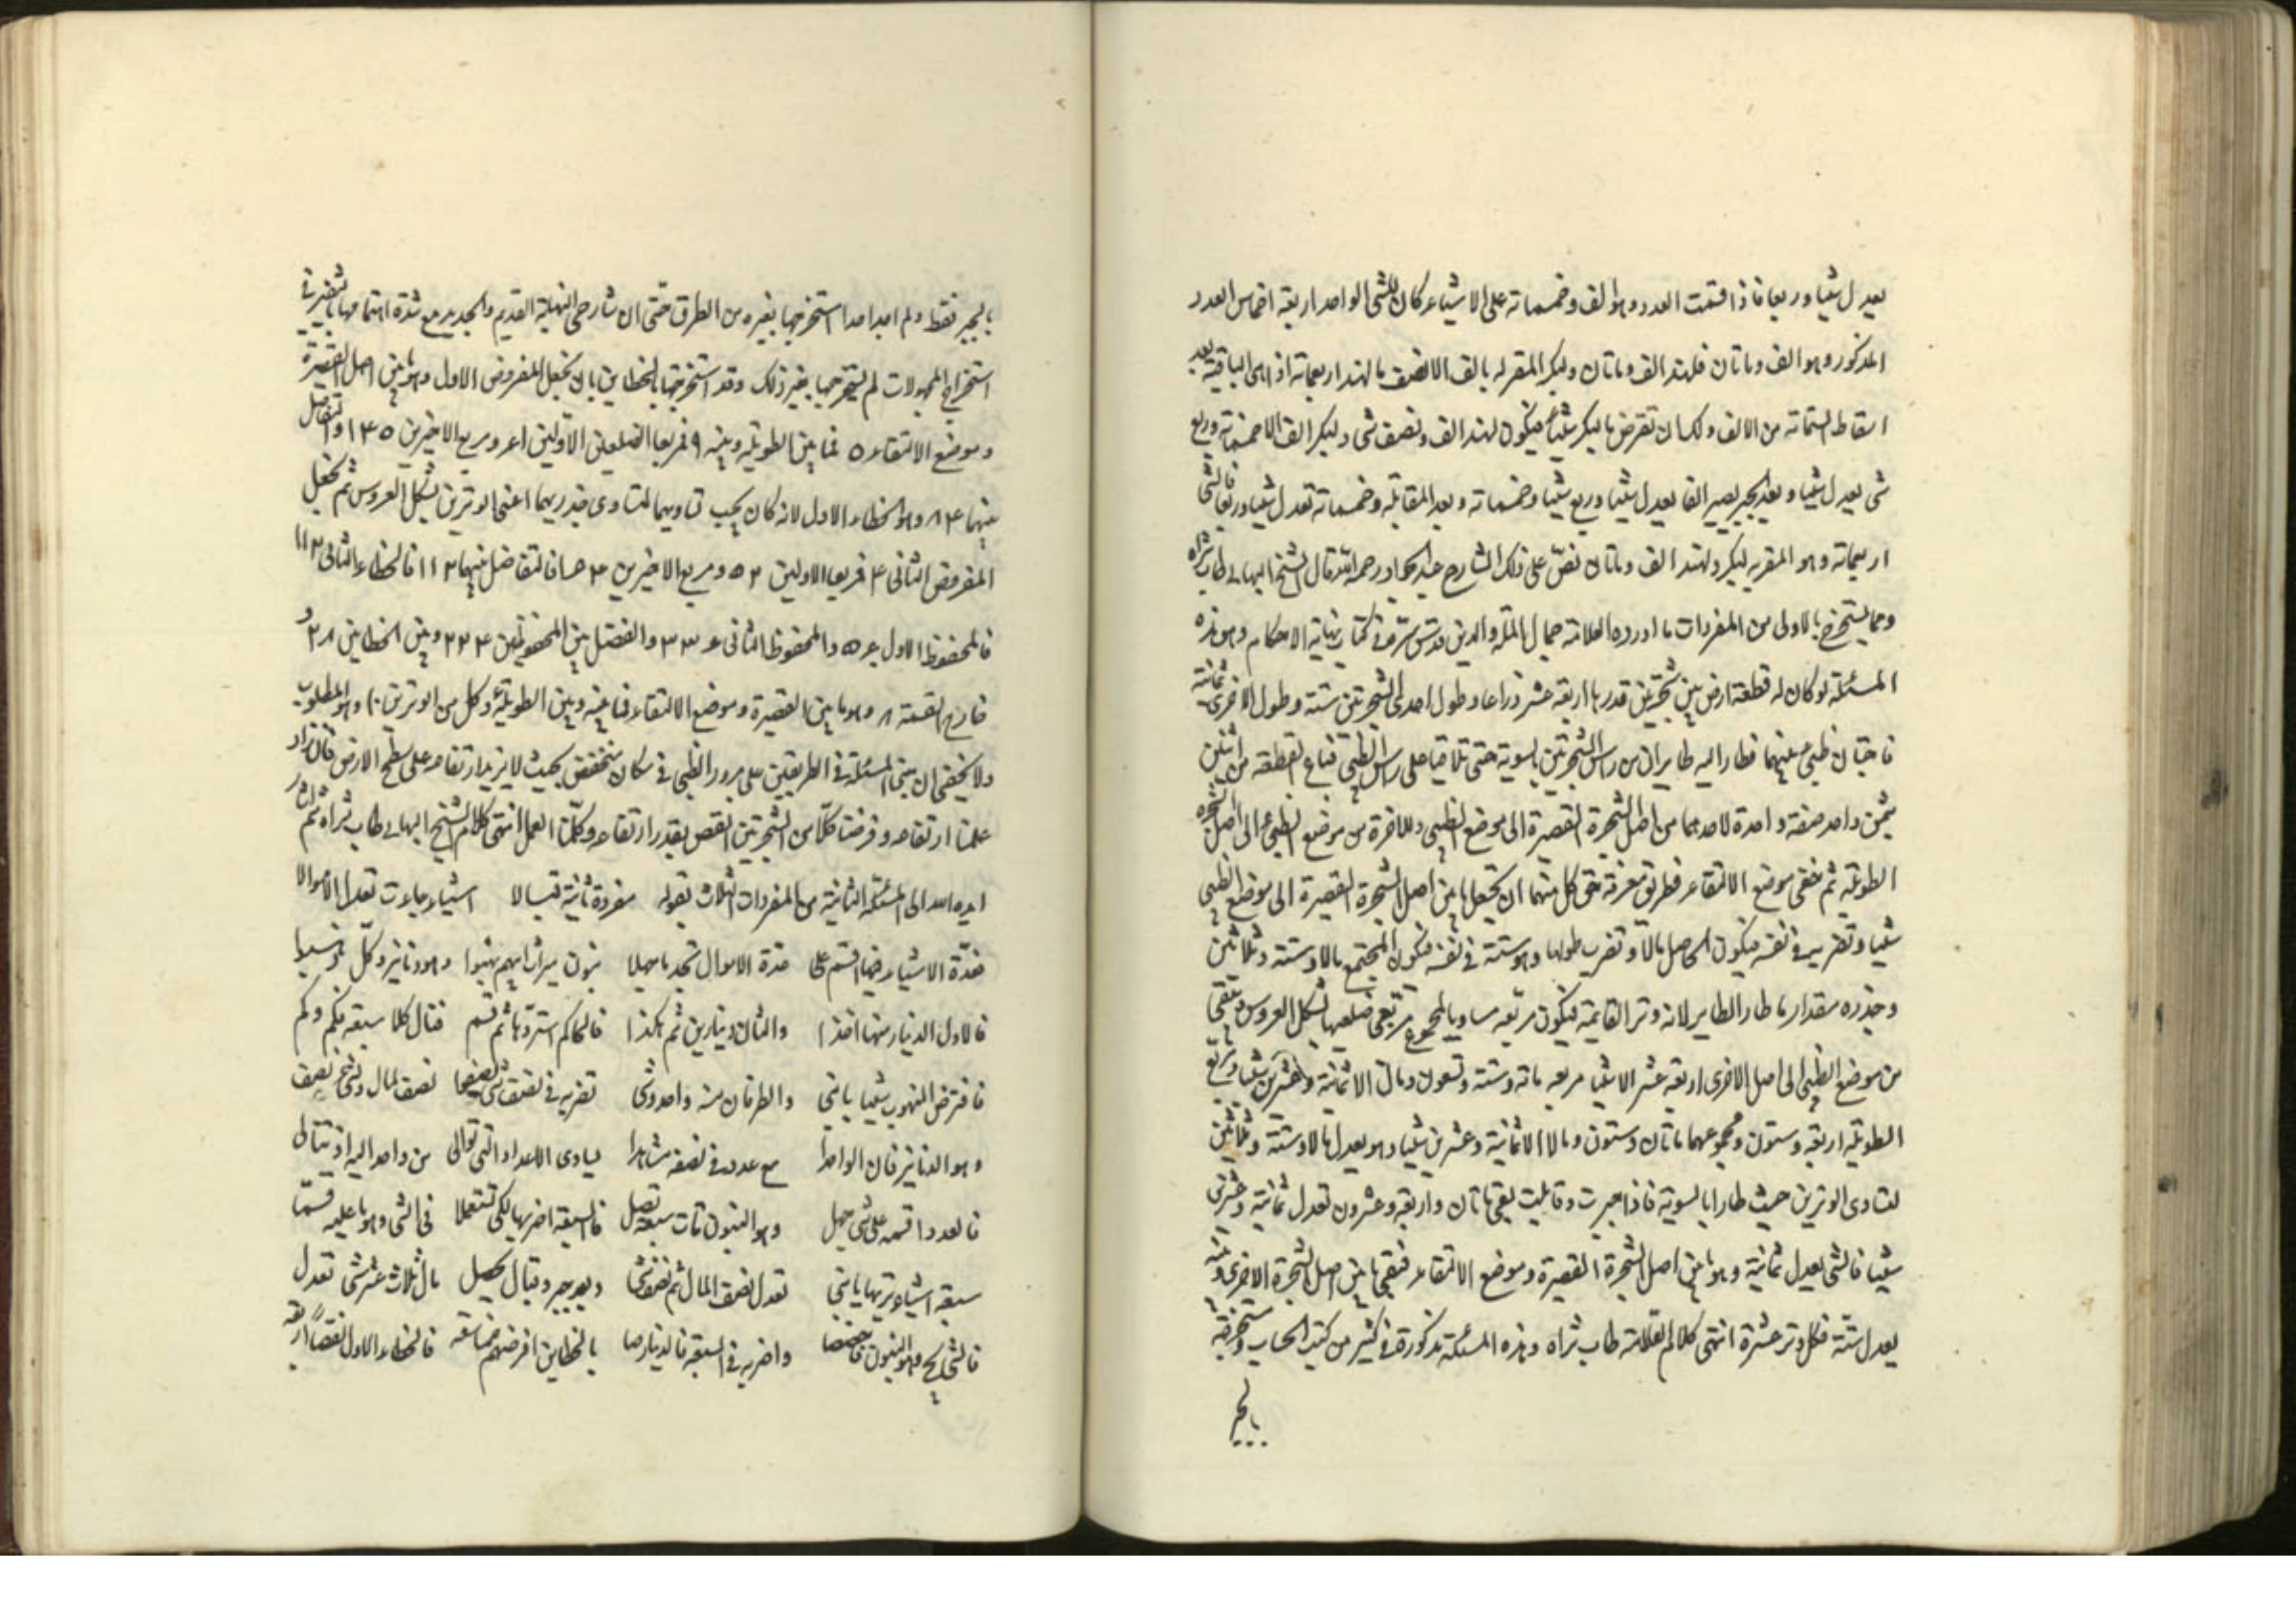 يعدل شيئا وربعا فاذا قسمت العدد وهو الف وخمسمائة على الاشياء كان للشئ الواحد اربعة اخماس العدد
المذكور وهو الف ومأتان فلهند الف ومأتان ولبكر المقر له بالف الا نصف ما لهند اربعمائة اذ هى الباقية بعد
اسقاط الستمائة من الالف ولك ان تفرض ما لبكر شيئا فيكون لهند الف ونصف شئ ولبكر الف الا خمسمائة وربع
شئ يعدل شيئا وبعد الجبر يصير الفا يعدل شيئا وربع شيئا وخمسمائة وبعد المقابلة وخمسمائة تعدل شيئا وربعا فالشئ
اربعمائة وهو المقر به لبكر ولهند الف ومأتان نص على ذلك الشارح الجواد رحمه الله قال الشيخ البهائى طاب ثراه
ومما يستخرج بالاولى من المفردات ما اورده العلامة جمال الملة والدين قدس سره فى كتاب نهاية الاحكام وهو هذه
المسئلة لو كان له قطعة ارض بين شجرتين قدرها اربعة عشر ذراعا وطول احدى الشجرتين ستة وطول الاخرى ثمانية
فاجتاز ظبى بينهما فطار اليه طايران من راس الشجرتين بالسوية حتى تلاقيا على راس الظبى فباع القطعة من اثنين
بثمن واحد صفقة واحدة لاحدهما من اصل الشجرة القصيرة الى موضع الظبى وللاخر من موضع الظبى الى اصل الشجرة
الطويلة ثم خفى موضع الالتقاء فطريق معرفة حق كل منهما ان تجعل ما بين اصل الشجرة القصيرة الى موضع الظبى
شيئا وتضربه فى نفسه فيكون الحاصل مالا وتضرب طولها وهو ستة فى نفسه فيكون المجتمع مالا وستة وثلاثين
وجذره مقدار ما طار الطاير لانه وتر القايمة فيكون مربعه مساويا لمجموع مربعى ضلعيها بشكل العروس ويبقى
من موضع الظبى الى اصل الاخرى اربعة عشر الا شيئا مربعه مائة وستة وتسعون ومال الا ثمانية وعشرين شيئا ومربع
الطويلة اربعة وستون ومجموعهما مأتان وستون ومالا الا ثمانية وعشرين شيئا وهو يعدل مالا وستة وثلاثين
لتساوى الوترين حيث طارا بالسوية فاذا جبرت وقابلت بقى مأتان واربعة وعشرون تعدل ثمانية وعشرين
شيئا فالشئ يعدل ثمانية وهو ما بين اصل الشجرة القصيرة وموضع الالتقاء فبقى ما بين اصل الشجرة الاخرى وبينه
يعدل ستة فكل وتر عشرة انتهى كلام العلامة طاب ثراه وهذه المسئلة مذكورة فى كثير من كتب الحساب ومستخرجة
بالجبر
بالجبر فقط ولم اجد احدا استخرجها بغيره من الطرق حتى ان شارحى النهاية القديم والجديد مع شدة اهتمامهما بالتغيير فى
استخراج المجهولات لم يستخرجها بغير ذلك وقد استخرجتها بالخطاين بان تجعل المفروض الاول وهو ما بين اصل القصيرة
وموضع الالتقاء ٥ فما بين الطويلة وبينه ٩ فمربعا الضلعين الاولين اعر ومربع الاخيرين ١٤٥ والتفاضل
بينهما ٨٤ وهو الخطاء الاول لانه كان يجب تساويهما لتساوى جذريهما اعنى الوترين بشكل العروس ثم تجعل
المفروض الثانى ٤ فمربعا الاولين ٥٢ ومربع الاخيرين والتفاضل بينهما ١١٢ فالخطاء الثانى ١١٢
فالمحفوظ الاول والمحفوظ الثانى والفضل بين المحفوظين ٢٢٤ وبين الخطاين ٢٨ و
خارج القسمة ٨ وهو ما بين القصيرة وموضع الالتقاء فما بينه وبين الطويلة وكل من الوترين ١٠ وهو المطلوب
ولا يخفى ان مبنى المسئلة فى الطريقين على مرور الظبى فى مكان منخفض بحيث لا يزيد ارتفاعه على سطح الارض فان زاد
علمنا ارتفاعه وفرضنا كلا من الشجرتين انقص بقدر ارتفاعه وكملنا العمل انتهى كلام الشيخ البهائى طاب ثراه ثم اشار
ايده الله الى المسئلة الثانية من المفردات الثلاث بقوله مفردة ثانية تبسالا اشياء جاءت تعدل الاموالا
فعدة الاشياء فيها اقسم على عدة الاموال تجد ما سهلا بنون ميراث ابيهم نهبوا وهو دنانير وكل
فالاول الدينار منها اخذا والثان دينارين ثم هكذا فالحاكم استردها ثم قسم فنال كلا سبعة فكم وكم
فافترض المنهوب شيئا يا بنى والطرفان منه واحد وشئ تضربه فى نصف شئ نصف المال والشئ نصف
وهو الدنانير فان الواحدا مع عدد فى نصفه يساوى الاعداد التى توالى من واحد اليه اذ تتالى
فالعدد اقسمه على شئ جهل وهو البنون تات سبعة تصل فالسبعة اضربها لكى تستعملا فى الشئ وهو ما عليه قسما
سبعة اشياء تريها يا بنى تعدل نصف المال ثم نصف شئ وبعد جبر وقبال يحصل مال ثلاث عشر شئ تعدل
فالشئ يج وهو البنون واضربه فى السبعة فالدينار صا بالخطاين افرضهم خماسة فالخطاء الاول نقصا اربعة